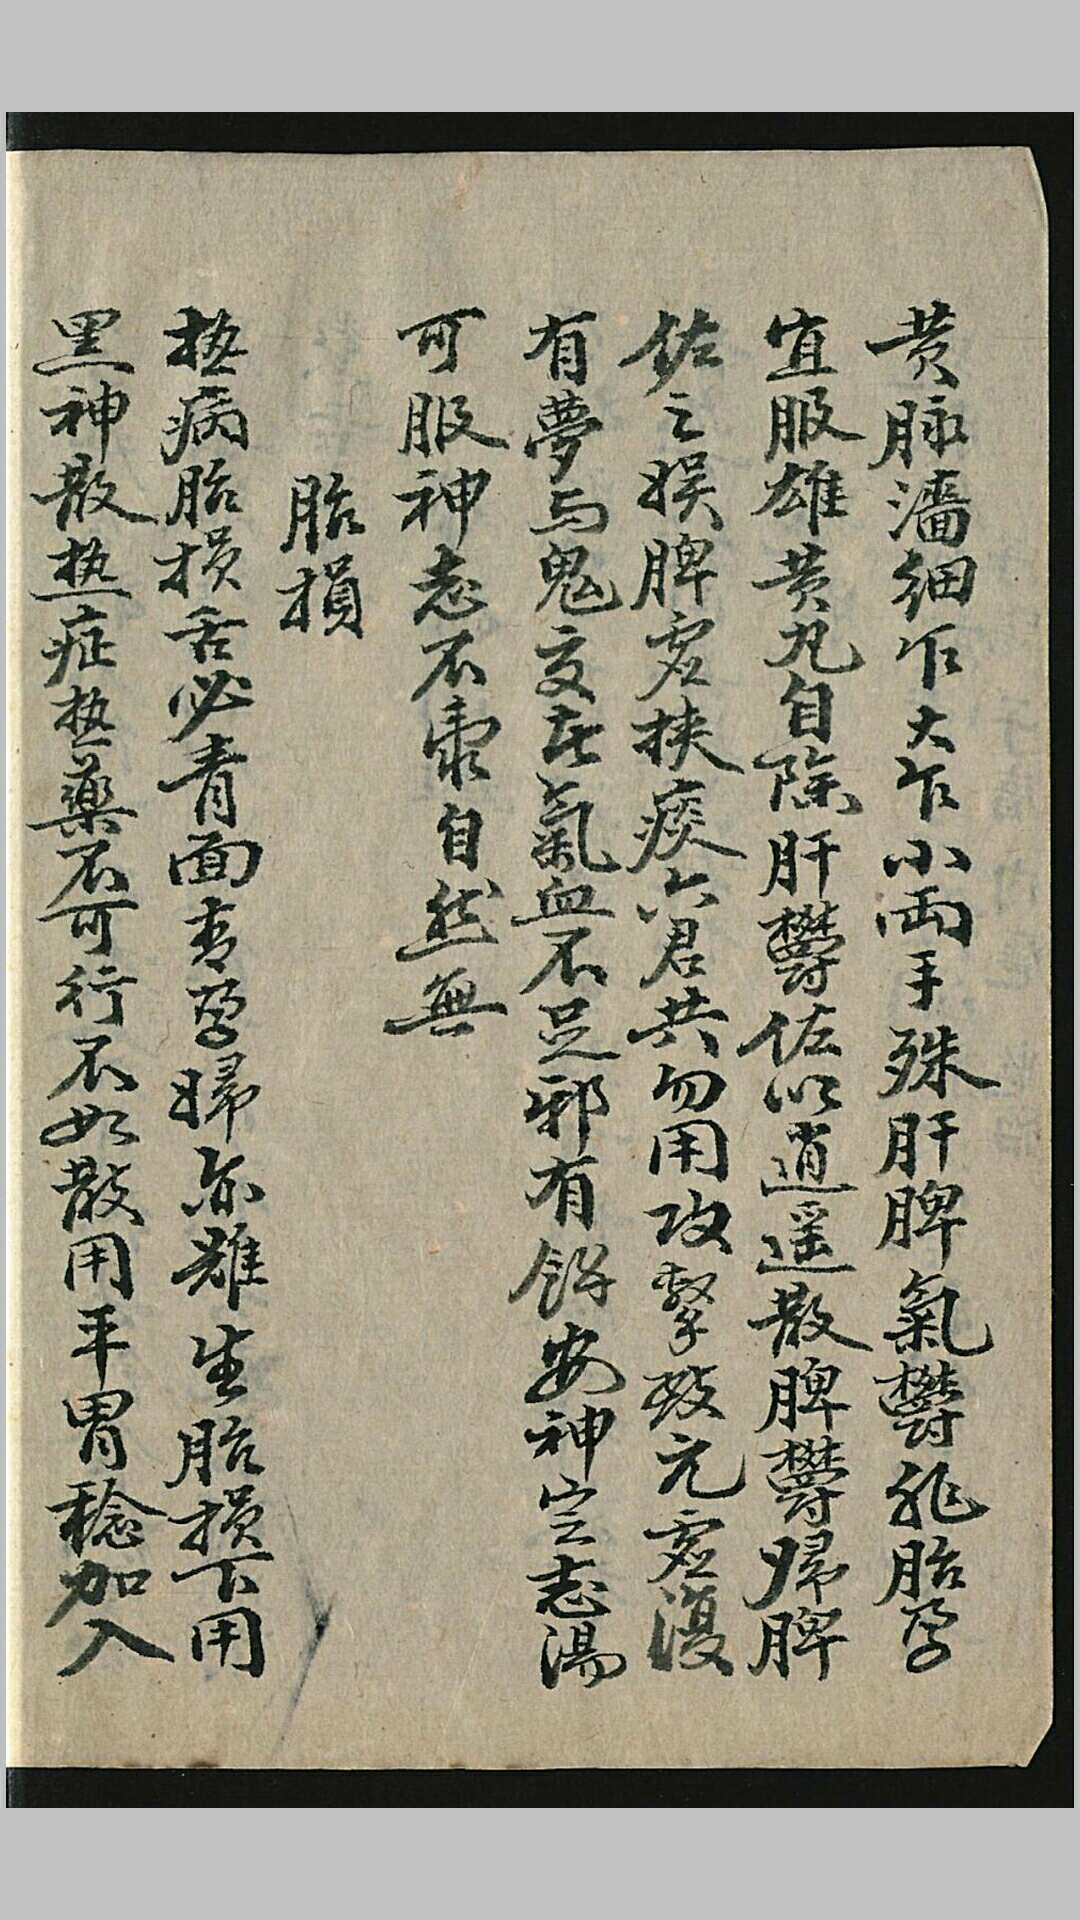 黄脉濇细乍大乍小両手殊肝脾氣鬱非胎孕
宜服雄黄丸自除肝鬱佐以逍遥散脾鬱歸脾
佐之娱脾虚挟痰六君共勿用攻擊致元虚復
有夢与鬼交在氣血不足邪有餘安神定志湯
可服神志不衰自然無
胎損
热病胎损舌必青面青孕婦亦难生胎损下用
黑神散热症热藥不可行不如散用平胃稔加入